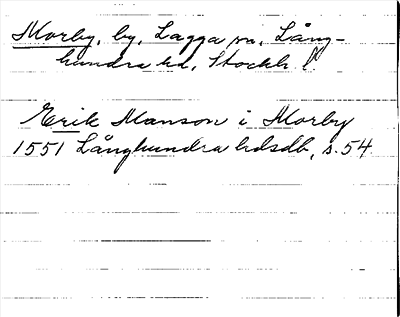 Morby, by, Lagga sn, Lång-
hundra hd, Stockh. l.
Erik Manson i Morby
1551 Långhundra hdsdb, s. 54